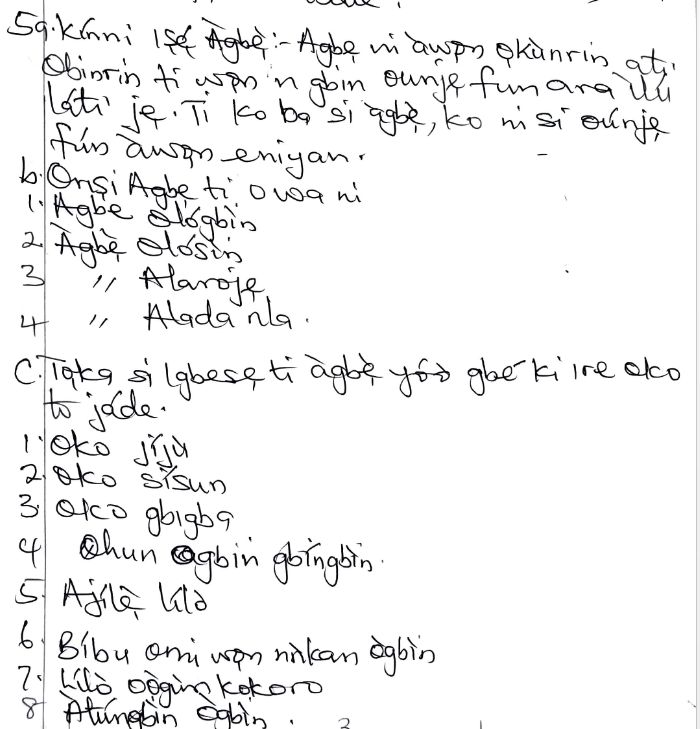 5a. Kínni Iṣẹ́ Àgbẹ̀:- Agbẹ ni àwọn ọkùnrin ati
Obinrin ti wọn n gbin ounjẹ fun ara ìlú
láti jẹ. Ti ko ba si àgbẹ̀, ko ni si oúnjẹ
fún àwọn eniyan.
b. Oriṣi Agbẹ ti o wa ni
1. Agbẹ ológbìn
2. Àgbẹ̀ ọlọ́sìn
3 " Alarojẹ
4 " Alada nla.
C. Tọka si Igbesẹ ti àgbẹ̀ yóò gbé ki ire oko
to jáde.
1. oko jíjù
2. oko sísun
3. oko gbigba
4 Ohun ọgbin gbíngbìn.
5. Ajílẹ̀ lílò
6. Bíbu omi wọn nǹkan ọ̀gbìn
7. Lílò oògùn kokoro
8 Àtúngbìn ọ̀gbìn.